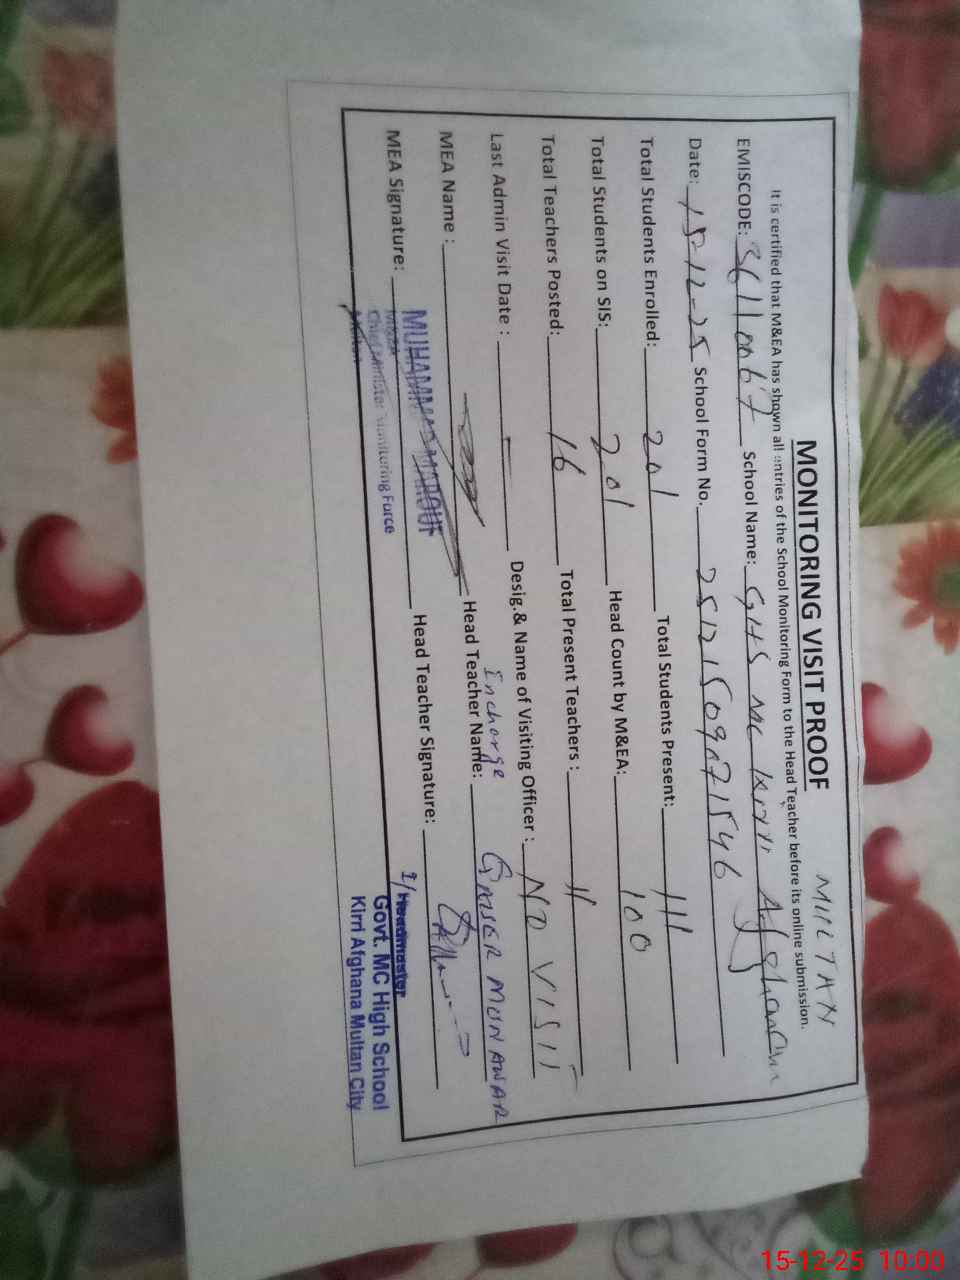 MULTAN
MONITORING VISIT PROOF
It is certified that M&EA has shown all entries of the School Monitoring Form to the Head Teacher before its online submission.
EMISCODE: School Name: GHS MC Kirri Afghana
Date: 15-12-25 School Form No. 2512150971546
Total Students Enrolled: 201 Total Students Present: 111
Total Students on SIS: 201 Head Count by M&EA: 100
Total Teachers Posted: 16 Total Present Teachers : 11
Last Admin Visit Date : Desig.& Name of Visiting Officer : NO VISIT
Encharge
MEA Name : Head Teacher Name: MUNAWAR
MEA Signature: MUHAMMAD MAROUF Head Teacher Signature:
Chief Minister Monitoring Force
Multan
I/Headmaster
Govt. MC High School
Kirri Afghana Multan City
15-12-25 10:00